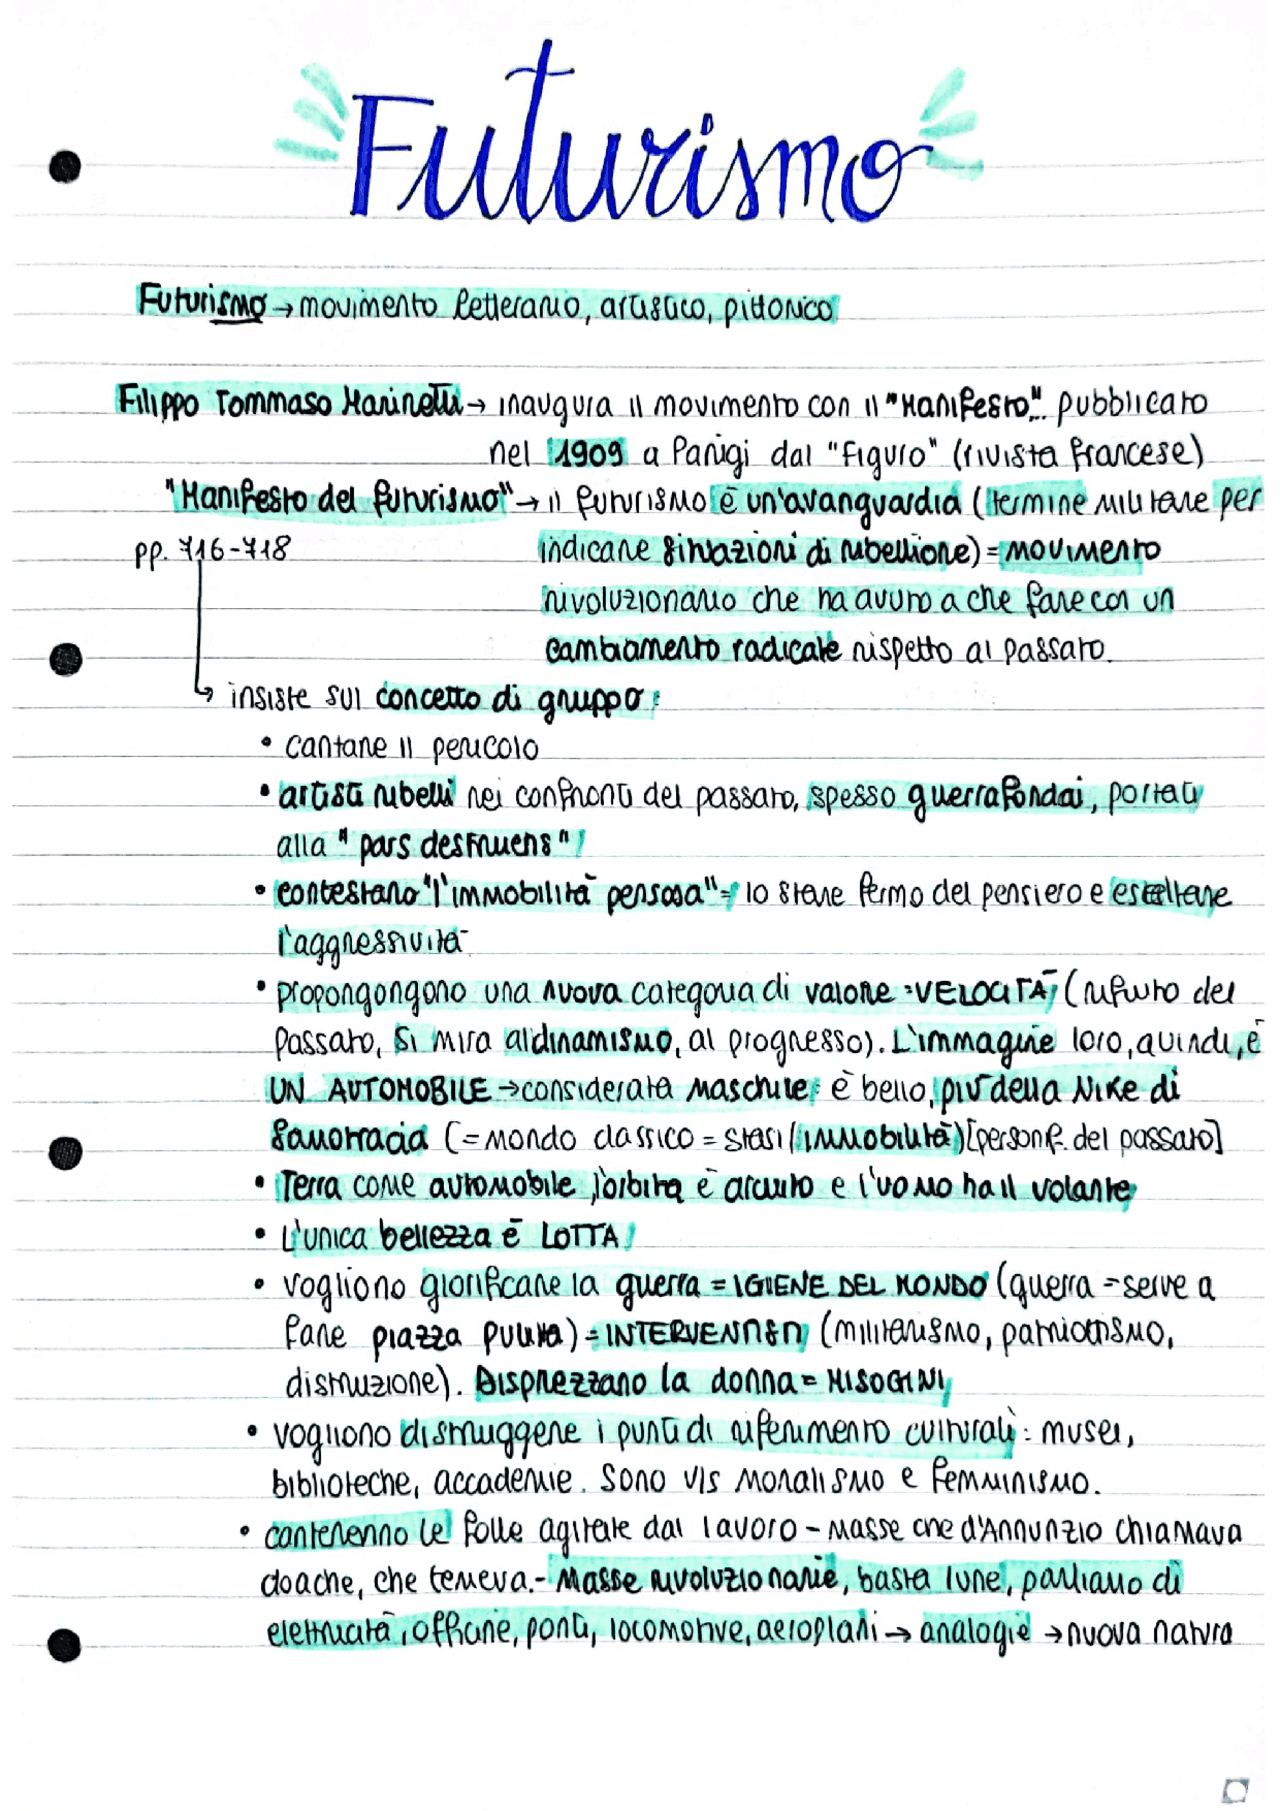 Futurismo
Futurismo → movimento letterario, artistico, pittorico
Filippo Tommaso Marinetti → inaugura il movimento con il "Manifesto" pubblicato
nel 1909 a Parigi dal "Figuro" (rivista francese)
"Manifesto del futurismo" → il futurismo è un'avanguardia (termine militare per
pp. 716-718
indicare situazioni di ribellione) = movimento
rivoluzionario che ha avuto a che fare con un
cambiamento radicale rispetto al passato.
↳ insiste sul concetto di gruppo:
• cantare il pericolo
• artisti ribelli nei confronti del passato, spesso guerrafondai, portati
alla "pars destruens"
• contestano "l'immobilità pensosa" = lo stare fermo del pensiero e esaltare
l'aggressività
• propongongono una nuova categoria di valore: VELOCITÀ (rifiuto del
passato, si mira al dinamismo, al progresso). L'immagine loro, quindi, è
UN AUTOMOBILE → considerata maschile: è bello, più della Nike di
Samotracia (= mondo classico = stasi/immobilità) [personif. del passato]
• Terra come automobile, l'orbita è circuito e l'uomo ha il volante
• L'unica bellezza è LOTTA
• vogliono glorificare la guerra = IGIENE DEL MONDO (guerra = serve a
fare piazza pulita) = INTERVENTISTI (militarismo, patriottismo,
distruzione). Disprezzano la donna = MISOGINI
• vogliono distruggere i punti di riferimento culturali: musei,
biblioteche, accademie. Sono vis moralismo e femminismo.
• canteremno le folle agitate dal lavoro - masse che d'Annunzio chiamava
cloache, che temeva. - Masse rivoluzionarie, basta lune, parliamo di
elettricità, officine, ponti, locomotive, aeroplani → analogie → nuova natura